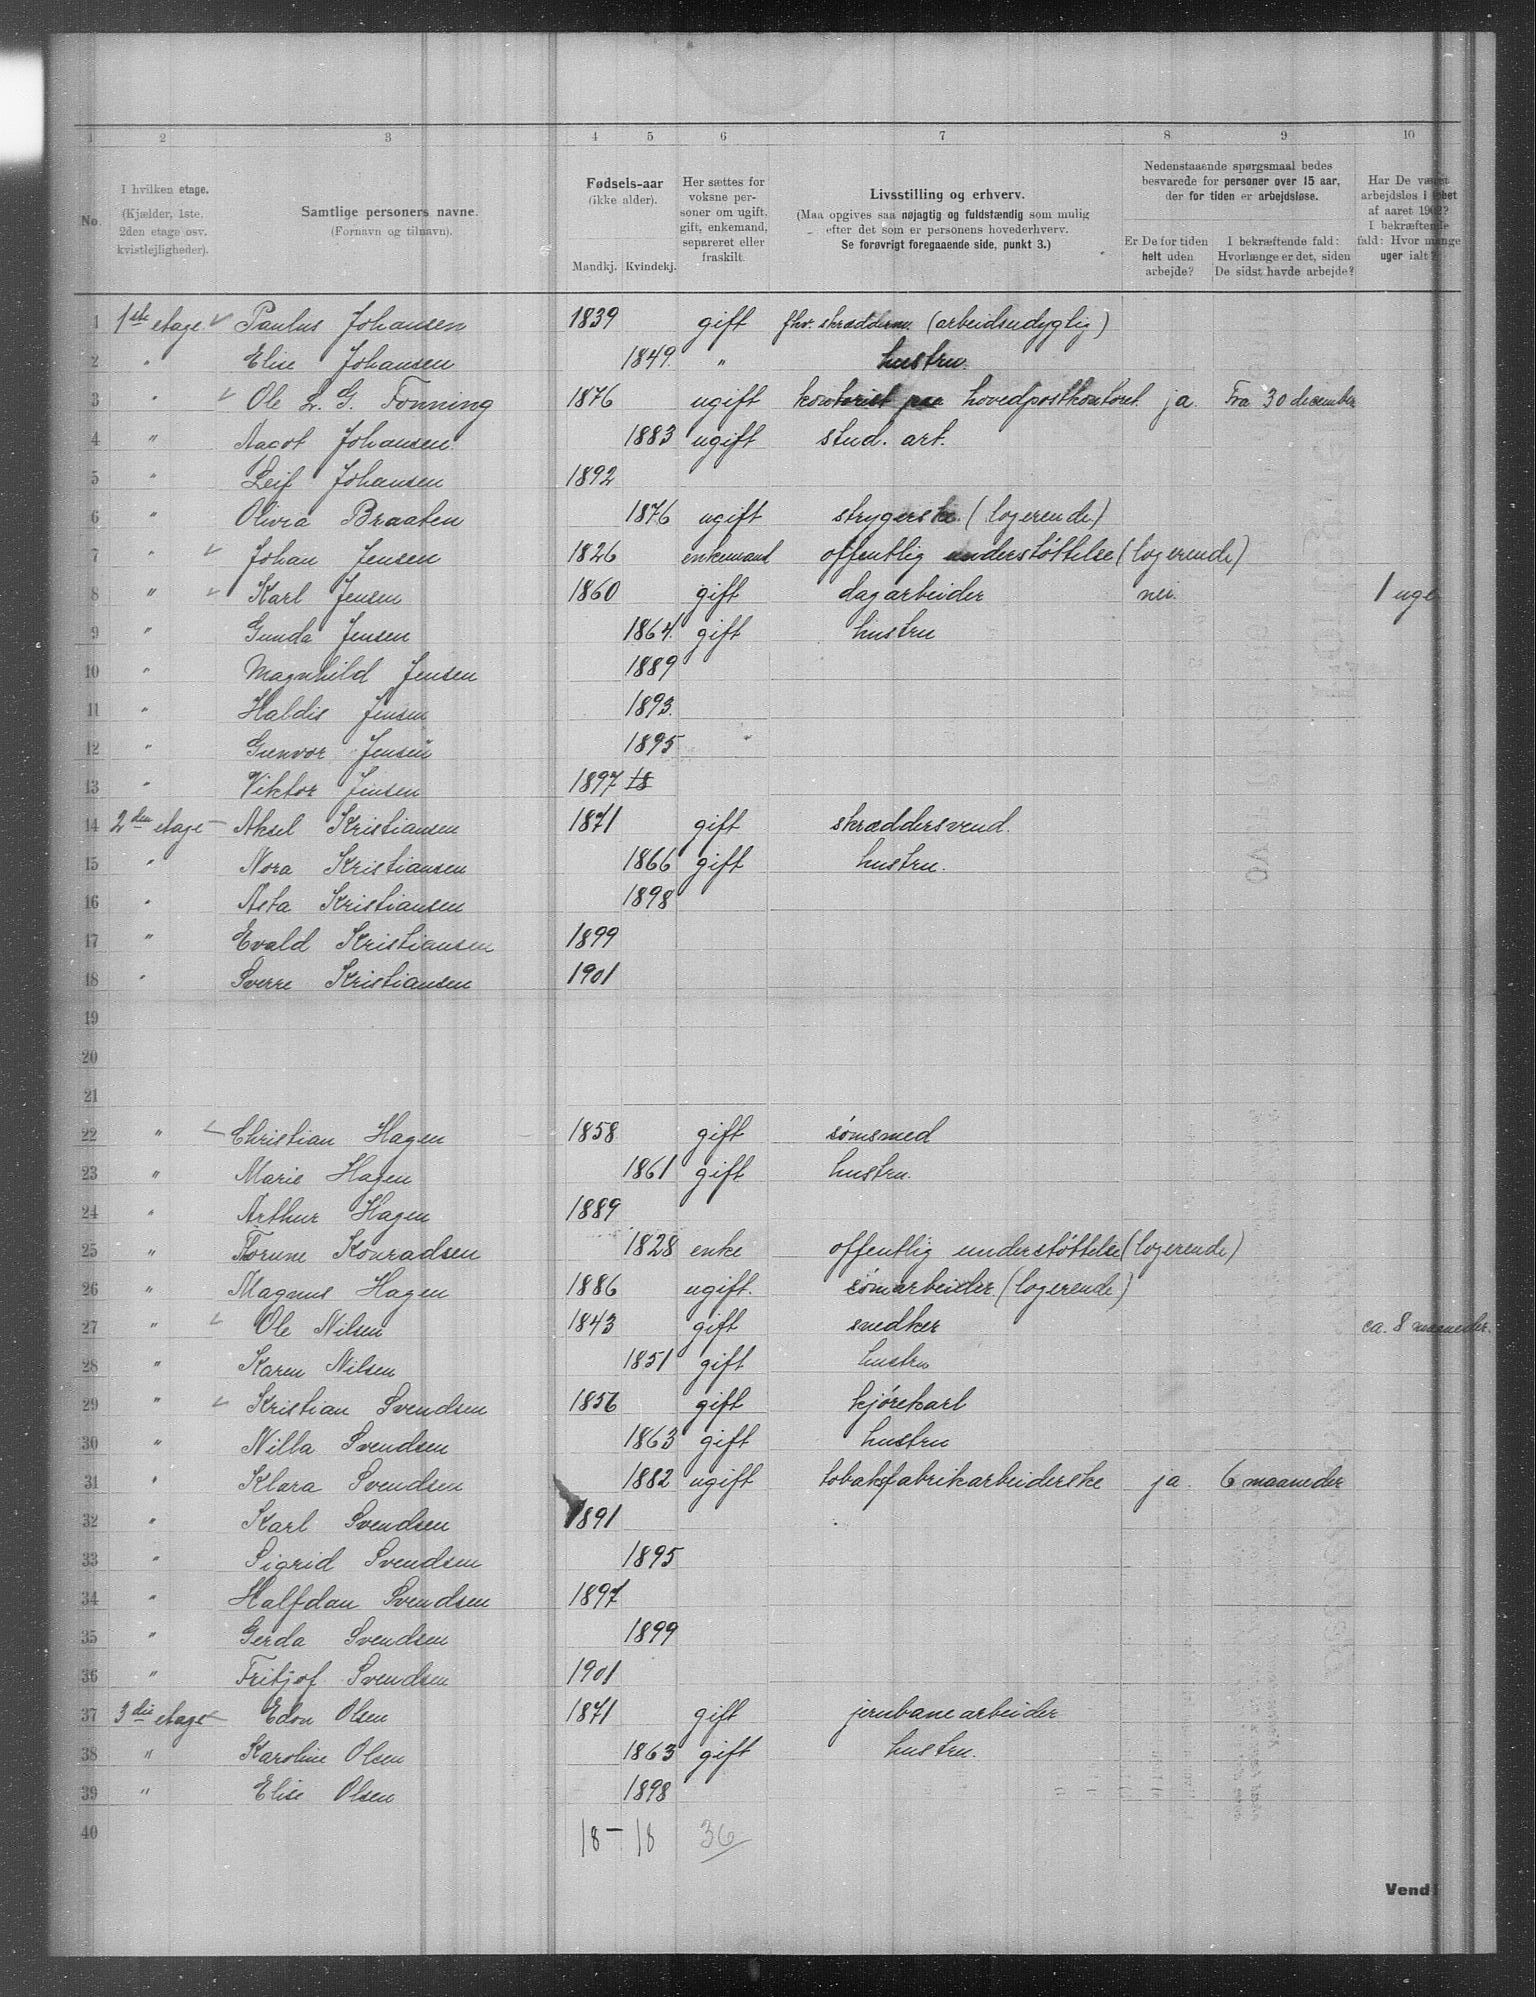 1 2 3 4 5 6 7 8 9 10
No.
I hvilken etage. (Kjælder, 1ste, 2den etage osv. kvistlejligheder).
Samtlige personers navne. (Fornavn og tilnavn).
Fødsels-aar (ikke alder). Mandkj. Kvindekj.
Her sættes for voksne personer om ugift, gift, enkemand, separeret eller fraskilt.
Livsstilling og erhverv. (Maa opgives saa nøjagtig og fuldstændig som mulig efter det som er personens hovederhverv. Se forøvrigt foregaaende side, punkt 3.)
Nedenstaaende spørgsmaal bedes besvarede for personer over 15 aar, der for tiden er arbejdsløse.
Er De for tiden helt uden arbejde?
I bekræftende fald: Hvorlænge er det, siden De sidst havde arbejde?
Har De været arbejdsløs i løbet af aaret 1902? I bekræftende fald: Hvor mange uger ialt?
1 1ste etage Paulus Johansen 1839 gift fhv. skrædderm. (arbeidsudyglig)
2 " Elise Johansen 1849. " hustru.
3 " Ole L. G. Fonning 1876 ugift kontorist paa hovedpostkontoret ja. Fra 30 december
4 " Aagot Johansen. 1883 ugift stud. art.
5 " Leif Johansen 1892
6 " Olivia Braaten 1876 ugift strygerske. (logerende)
7 " Johan Jensen 1826 enkemand offentlig understöttelse (logerende)
8 " Karl Jensen 1860 gift dagarbeider nei. 1 uge
9 " Gunda Jensen 1864. gift hustru
10 " Magnhild Jensen 1889
11 " Haldis Jensen 1893.
12 " Gunvor Jensen 1895
13 " Viktor Jensen 1897 18
14 2den etage Aksel Kristiansen 1871 gift skræddersvend.
15 " Nora Kristiansen 1866 gift hustru.
16 " Asta Kristiansen 1898
17 " Evald Kristiansen 1899
18 " Sverre Kristiansen 1901
19
20
21
22 " Christian Hagen 1858 gift sömsmed
23 " Marie Hagen 1861 gift hustru.
24 " Arthur Hagen 1889
25 " Torine Konradsen 1828 enke offentlig understöttelse (logerende)
26 " Magnus Hagen 1886 ugift. sömarbeider (logerende)
27 " Ole Nilsen 1843 gift snedker ca. 8 maaneder.
28 " Karen Nilsen 1851 gift hustru
29 " Kristian Svendsen 1856 gift kjörekarl
30 " Nilla Svendsen 1863 gift hustru
31 " Klara Svendsen 1882 ugift tobaksfabrikarbeiderske ja. 6 maaneder
32 " Karl Svendsen 1891
33 " Sigrid Svendsen 1895
34 " Halfdan Svendsen 1897
35 " Gerda Svendsen 1899
36 " Fritjof Svendsen 1901
37 3die etage Edon Olsen 1871 gift jernbanearbeider
38 " Karoline Olsen 1863 gift hustru.
39 " Elise Olsen 1898
40 18 – 18 36
Vend!